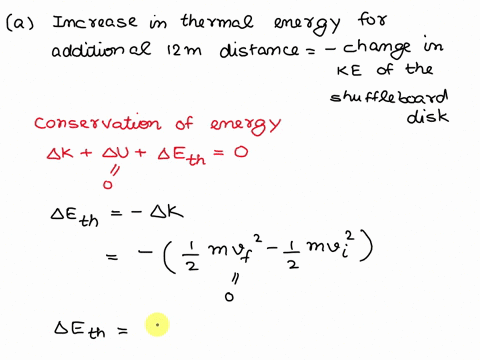 (a) Increase in thermal energy for
additional 12m distance = - change in
KE of the
shuffleboard
disk
Conservation of energy
ΔK + ΔU + ΔE_th = 0
||
0
ΔE_th = - ΔK
= - (1/2 m v_f^2 - 1/2 m v_i^2)
||
0
ΔE_th =